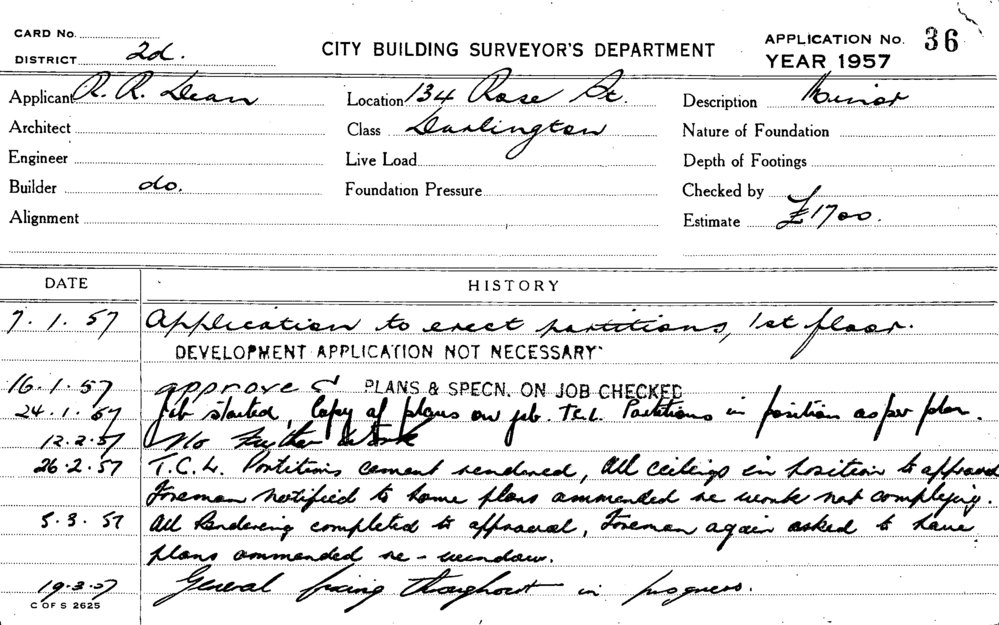 CARD No.
DISTRICT 2d.
CITY BUILDING SURVEYOR'S DEPARTMENT
APPLICATION No. 36
YEAR 1957
Applicant R. R. Dean
Location 134 Rose St.
Description Minor
Architect
Class Darlington
Nature of Foundation
Engineer
Live Load
Depth of Footings
Builder do.
Foundation Pressure
Checked by
Alignment
Estimate £1700.
DATE HISTORY
7.1.57 Application to erect partitions, 1st floor.
DEVELOPMENT APPLICATION NOT NECESSARY
16.1.57 approved PLANS & SPECN. ON JOB CHECKED
24.1.57 Job started, Copy of plans on job. T.C.L. Partitions in position as per plan.
12.2.57 No Further Work
26.2.57 T.C.L. Partitions cement rendered, All ceilings in position to approval
Foreman notified to have plans ammended re work not complying.
5.3.57 All Rendering completed to approval, Foreman again asked to have
plans ammended re-window.
19.3.57 General fixing throughout in progress.
C OF S 2625